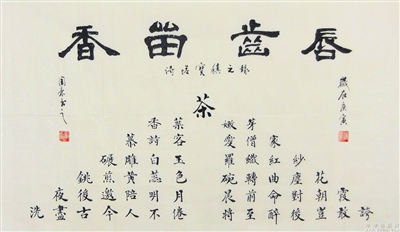 唇齒留香
錄元稹寶塔詩
歲在庚寅
茶
香葉嫩芽
慕詩客愛僧家
碾雕白玉羅織紅紗
銚煎黃蕊色碗轉曲塵花
夜後邀陪明月晨前命對朝霞
洗盡古今人不倦將至醉後豈敢誇